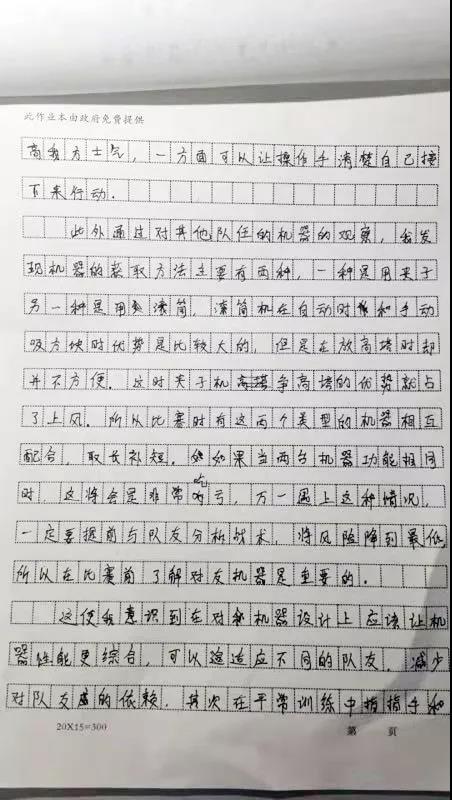 此作业本由政府免费提供
高我方士气，一方面可以让操作手清楚自己接
下来行动．
此外通过对其他队伍的机器的观察，我发
现机器的获取方法主要有两种，一种是用夹子
另一种是用滚筒，滚筒机在自动时和手动
吸方块时优势是比较大的，但是在放高塔时却
并不方便．这时夹子机争高塔的优势就占
了上风．所以比赛时有这两个类型的机器相互
配合，取长补短．如果当两台机器功能相同
时，这将会是非常吃亏，万一遇上这种情况，
一定要提前与队友分析战术，将风险降到最低
所以在比赛前了解对友机器是重要的．
这使我意识到在对机器设计上应该让机
器性能更综合，可以适应不同的队友，减少
对队友的依赖．其次在平常训练中指挥手和
20X15=300
第 页